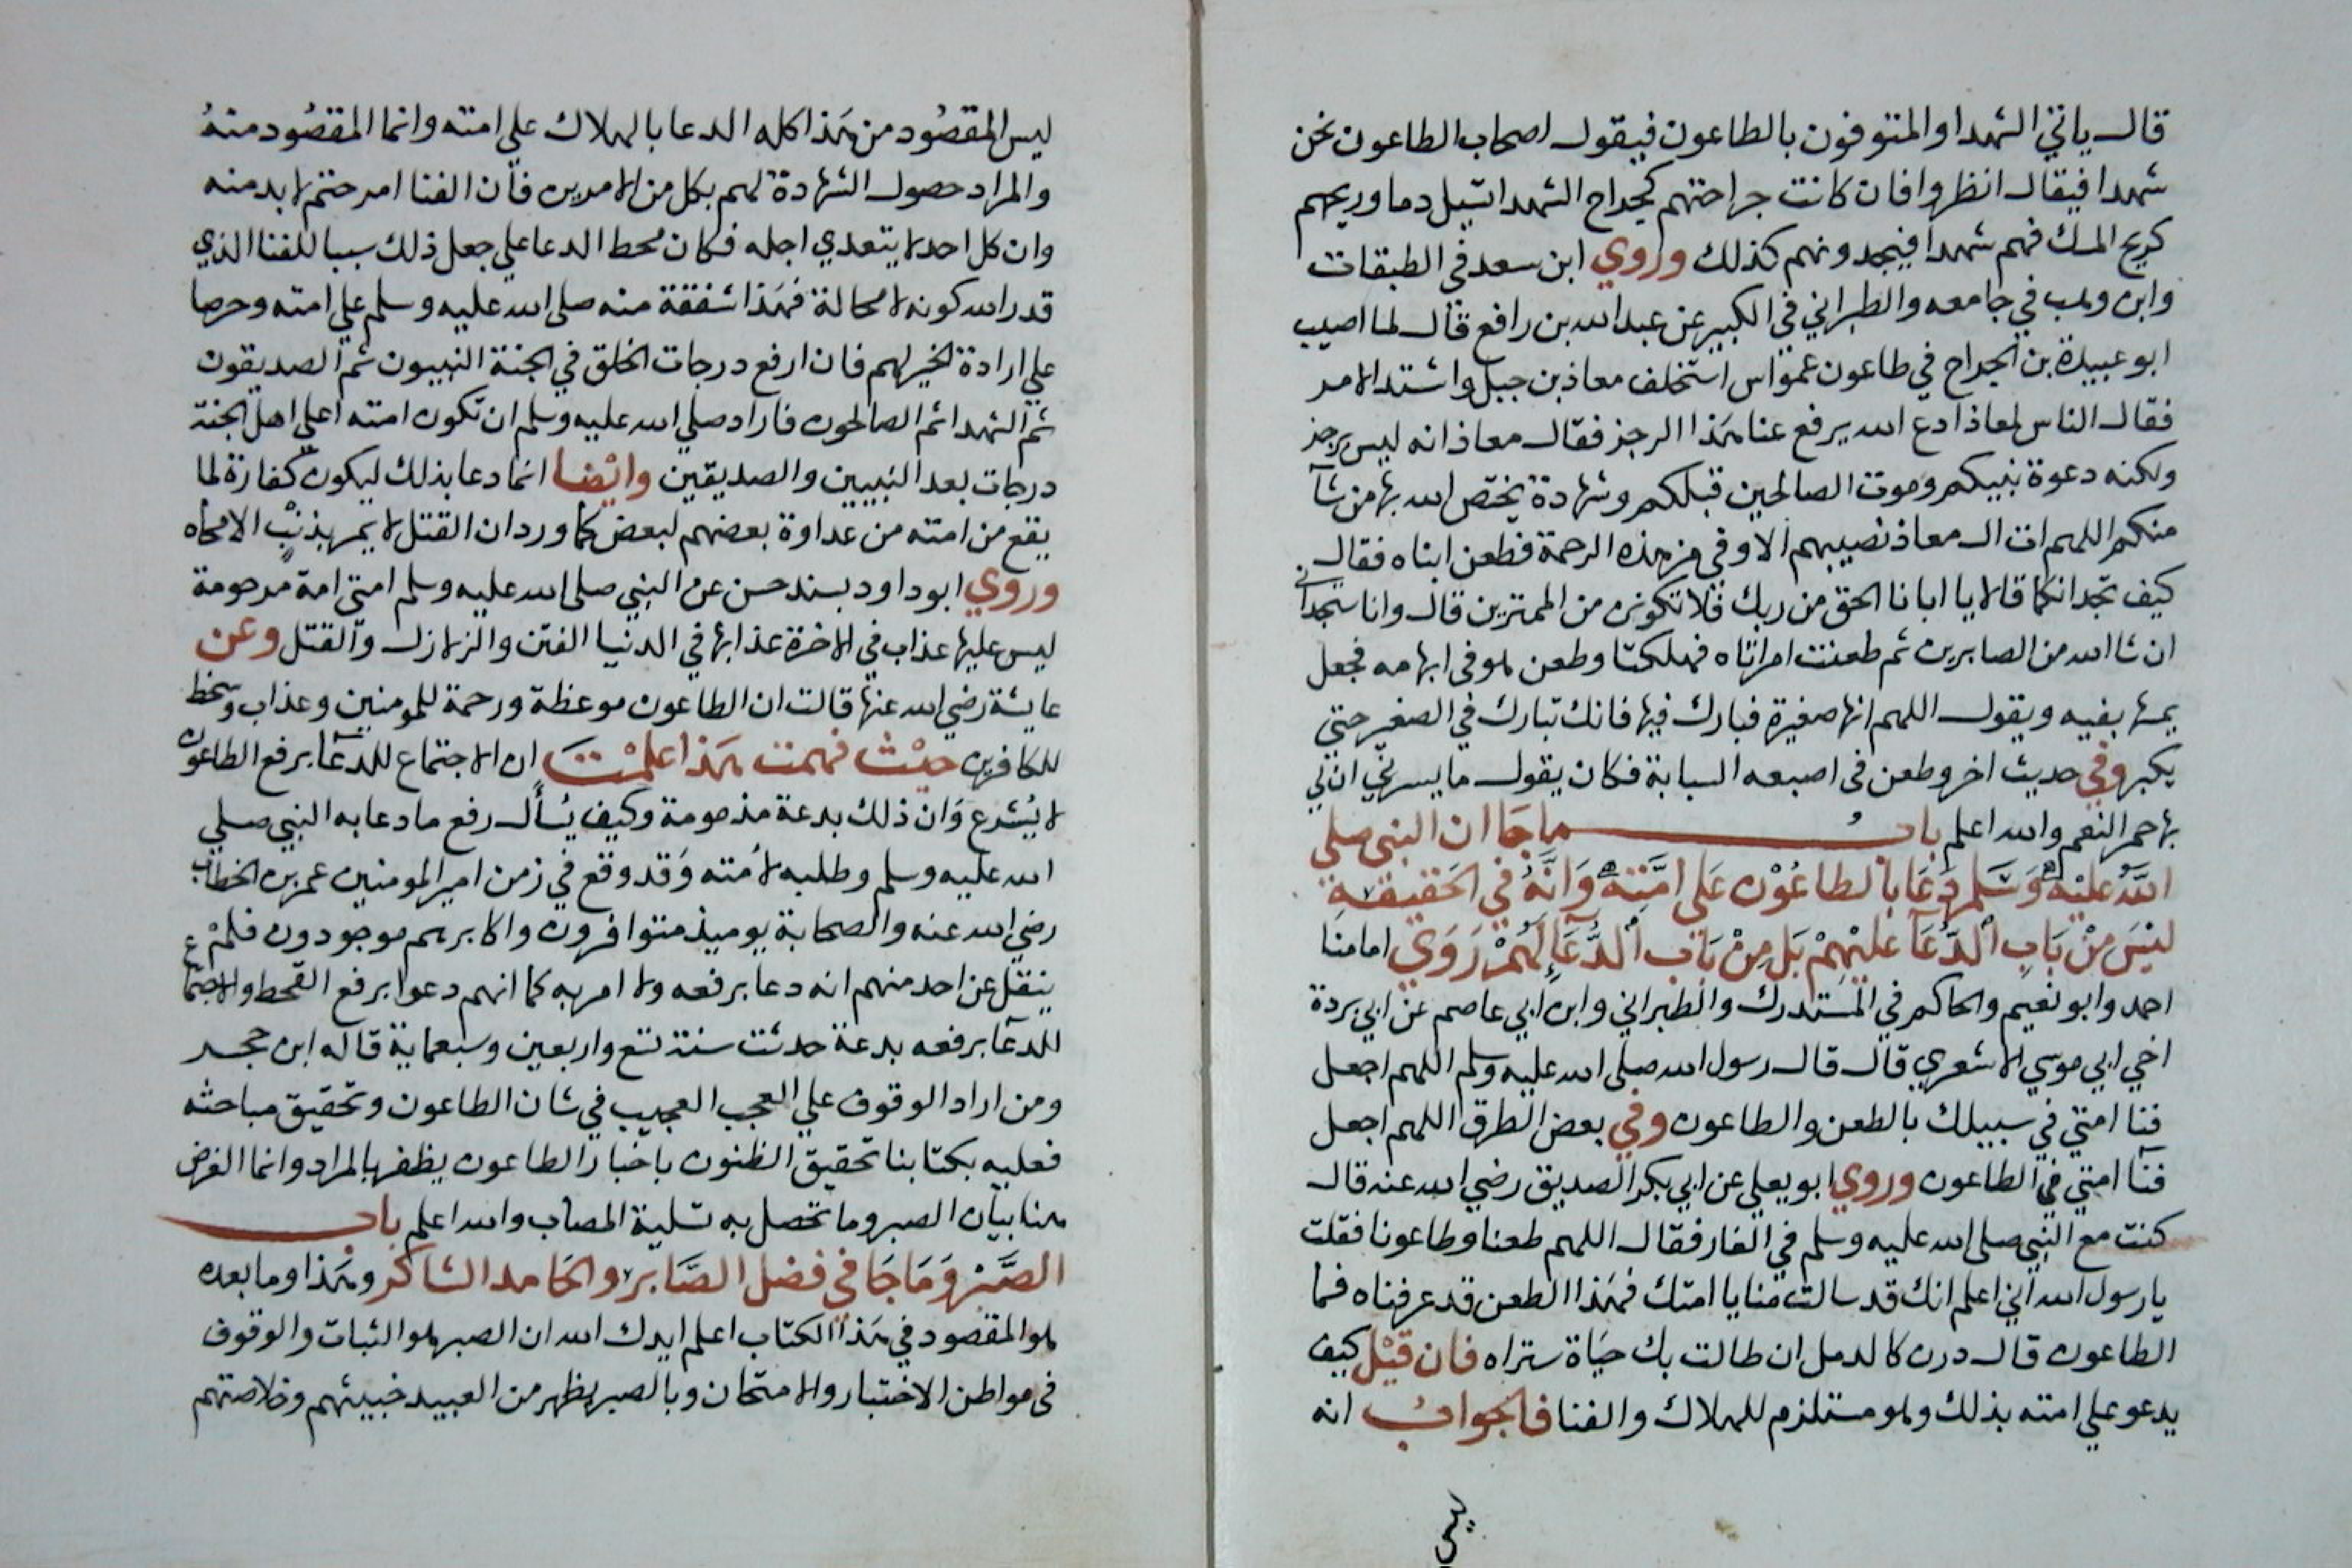 قال ياتي الشهدا والمتوفون بالطاعون فيقول اصحاب الطاعون نحن
شهدا فيقال انظروا فان كانت جراحتهم كجراح الشهدا تسيل دما وريحهم
كريح المسك فهم شهدا فيجدونهم كذلك وروي ابن سعد في الطبقات
وابن وهب في جامعه والطبراني في الكبير عن عبد الله بن رافع قال لما اصيب
ابو عبيدة بن الجراح في طاعون عمواس استخلف معاذ بن جبل واشتد الامر
فقال الناس لمعاذ ادع الله يرفع عنا هذا الرجز فقال معاذ انه ليس برجز
ولكنه دعوة نبيكم وموت الصالحين قبلكم وشهادة يختص الله بها من شآ
منكم اللهم ات ال معاذ نصيبهم الاوفى من هذه الرحمة فطعن ابناه فقال
كيف تجدانكما قالا يا ابانا الحق من ربك فلا تكونن من الممترين قال وانا ستجداني
ان شا الله من الصابرين ثم طعنت امراتاه فهلكتا وطعن هو في ابهامه فجعل
يمسها بفيه ويقول اللهم انها صغيرة فبارك فيها فانك تبارك في الصغير حتي
يكبر وفي حديث اخر وطعن في اصبعه السبابة فكان يقول ما يسرني ان لي
بها حمر النعم والله اعلم باب ما جَا ان النبي صلي
اللَّه عليْه وَسَلم دَعَا بالطاعُوْن عَلي امَّته وَانَّهُ في الحَقيقة
ليْسَ مِنْ بَابِ الدُّعَآ عَليْهِمْ بَل مِنْ بَاب الدُّعَآ لهُمْ رَوَي امامنا
احمد وابو نعيم والحاكم في المستدرك والطبراني وابن ابي عاصم عن ابي بردة
اخي ابي موسي الاشعري قال قال رسول الله صلى الله عليه وسلم اللهم اجعل
فنا امتي في سبيلك بالطعن والطاعون وفي بعض الطرق اللهم اجعل
فنآ امتي في الطاعون وروي ابو يعلي عن ابي بكر الصديق رضي الله عنه قال
كنت مع النبي صلى الله عليه وسلم في الغار فقال اللهم طعنا وطاعونا فقلت
يا رسول الله اني اعلم انك قد سالت منايا امتك فهذا الطعن قد عرفناه فما
الطاعون قال درن كالدمل ان طالت بك حيَاة ستراه فان قيْل كيف
يدعو علي امته بذلك وهو مستلزم للهلاك والفنا فالجواب انه
ليس
ليس المقصُود من هَذا كله الدعا بالهلاك علي امته وانما المقصُود منهُ
والمراد حصول الشهادة لهم بكل من الامرين فان الفنا امر حتم لا بد منه
وان كل احد لا يتعدي اجله فكان محط الدعا علي جعل ذلك سببا للفنا الذي
قدر الله كونه لا محالة فهَذا شفقة منه صلى الله عليه وسلم علي امته وحرصا
علي ارادة الخير لهم فان ارفع درجات الخلق في الجنة النبيون ثم الصديقون
ثم الشهدا ثم الصالحون فاراد صلي الله عليه وسلم ان تكون امته اعلي اهل الجنة
درجات بعد النبيين والصديقين وايْضا انما دعا بذلك ليكون كفارة لما
يقع من امته من عداوة بعضهم لبعض كما ورد ان القتل لا يمر بذنْبٍ الا محاه
وروي ابو داود بسند حسن عن النبي صلى الله عليه وسلم امتي امة مرحومة
ليس عليها عذاب في الاخرة عذابها في الدنيا الفتن والزلازل والقتل وعن
عايشة رضي الله عنها قالت ان الطاعون موعظة ورحمة للمومنين وعذاب وسخط
للكافرين حيْث فهمت هَذا علمْتَ ان الاجتماع للدعآ برفع الطاعون
لا يُشرع وَان ذلك بدعة مذمومة وكيف يُسأل رفع ما دعا به النبي صلي
الله عليه وسلم وطلبه لاُمته وَقد وقع في زمن امير المومنين عمر بن الخطاب
رضي الله عنه والصحابة يوميذ متوافرون واكابرهم موجودون فلمْ
ينقل عن احد منهم انه دعا برفعه ولا امر به كما انهم دعوا برفع القحط والاجتماع
للدعآ برفعه بدعة حدثت سنة تسع واربعين وسبعماية قاله ابن حجر
ومن اراد الوقوف علي العجب العجيب في شان الطاعون وتحقيق مباحثه
فعليه بكتابنا تحقيق الظنون باخبار الطاعون يظفر بالمراد وانما الغرض
هنا بيان الصبر وما تحصل به تسلية المصاب والله اعلم باب
الصَّبْر وَمَا جَا في فضل الصَّابر والحَامد الشاكر وهَذا وما بعده
هو المقصود في هَذا الكتاب اعلم ايدك الله ان الصبر هو الثبات والوقوف
في مواطن الاختبار والامتحان وبالصبر يظهر من العبيد خبيثهم وخلاصتهم